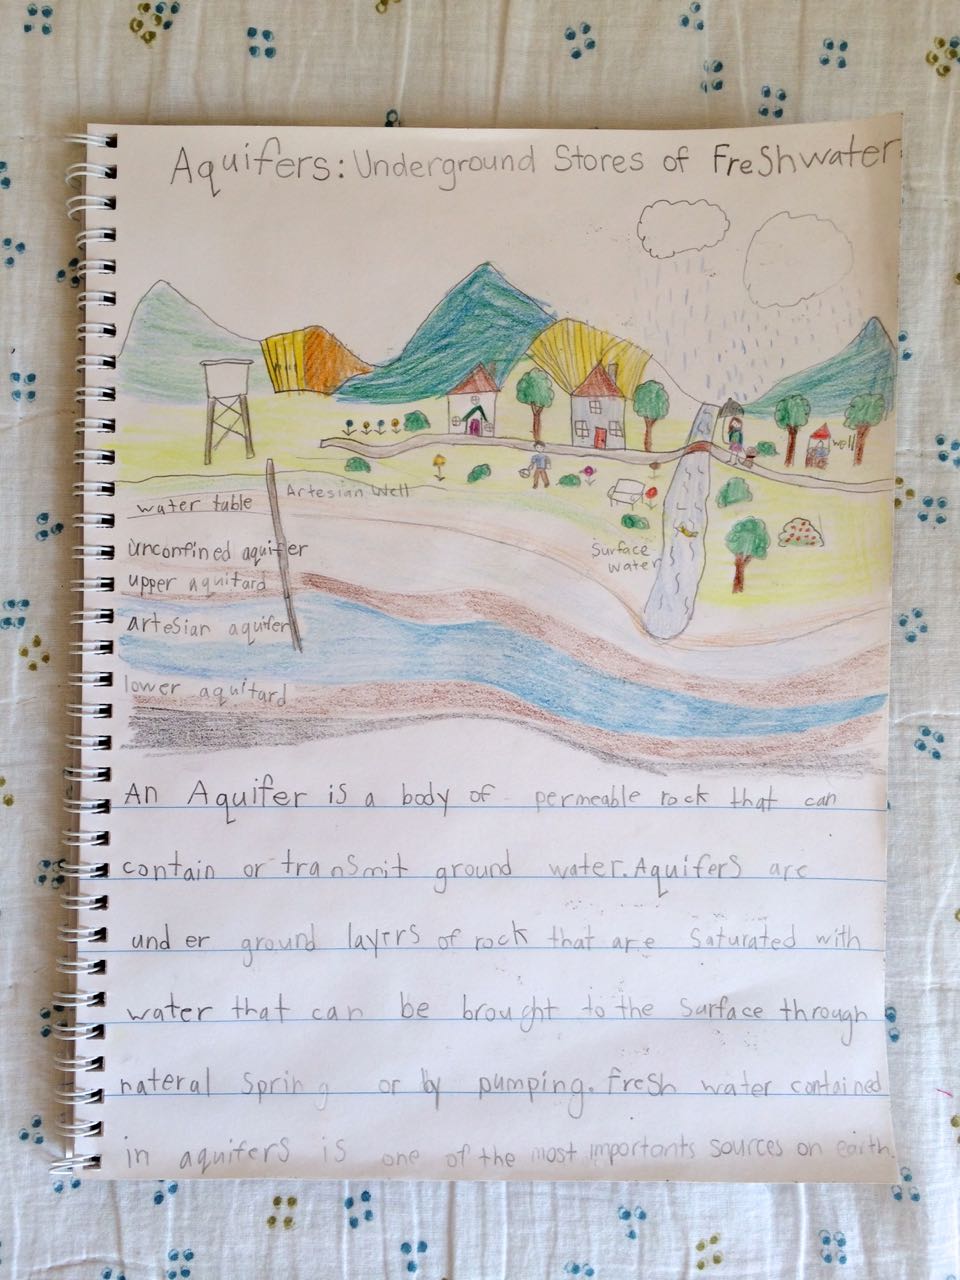 Aquifers: Underground Stores of Freshwater
well
Artesian Well
water table
unconfined aquifer
Surface
water
upper aquitard
artesian aquifer
lower aquitard
An Aquifer is a body of permeable rock that can
contain or transmit ground water. Aquifers are
under ground layers of rock that are saturated with
water that can be brought to the surface through
nateral spring or by pumping. Fresh water contained
in aquifers is one of the most importants sources on earth.